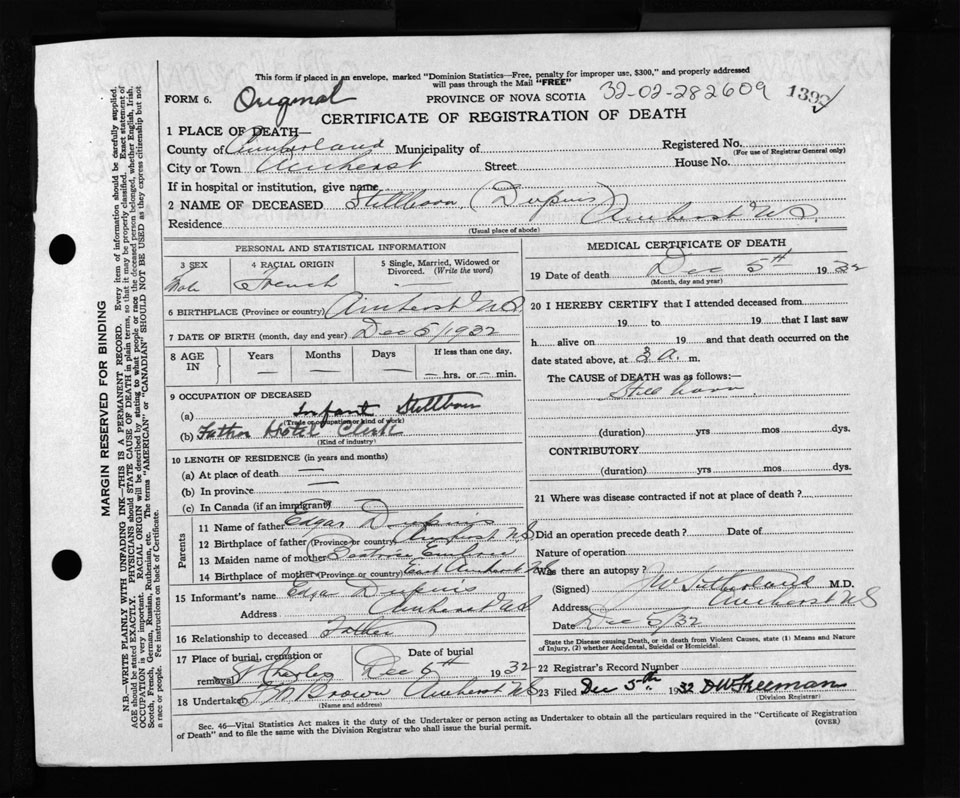 This form if placed in an envelope, marked "Dominion Statistics—Free, penalty for improper use, $300," and properly addressed
will pass through the Mail "FREE"
FORM 6. Original PROVINCE OF NOVA SCOTIA 32-02-282609 1392
CERTIFICATE OF REGISTRATION OF DEATH
1 PLACE OF DEATH—
County of Cumberland Municipality of Registered No.
(For use of Registrar General only)
City or Town Amherst Street House No.
If in hospital or institution, give name
2 NAME OF DECEASED Stillborn (Dupuis)
Residence Amherst N.S.
(Usual place of abode)
PERSONAL AND STATISTICAL INFORMATION
3 SEX 4 RACIAL ORIGIN 5 Single, Married, Widowed or
Divorced. (Write the word)
Male French —
6 BIRTHPLACE (Province or country) Amherst N.S.
7 DATE OF BIRTH (month, day and year) Dec 5/1932
8 AGE IN Years Months Days If less than one day,
— — — — hrs. or — min.
9 OCCUPATION OF DECEASED
(a) Infant Stillborn
(Trade or occupation or kind of work)
(b) Father Hotel Clerk
(Kind of industry)
10 LENGTH OF RESIDENCE (in years and months)
(a) At place of death —
(b) In province —
(c) In Canada (if an immigrant)
Parents
11 Name of father Edgar Dupuis
12 Birthplace of father (Province or country) Amherst N.S
13 Maiden name of mother
14 Birthplace of mother (Province or country) East Amherst N.S
15 Informant's name Edgar Dupuis
Address Amherst N.S
16 Relationship to deceased Father
17 Place of burial, cremation or Date of burial
removal St Charles Dec 6th 1932
18 Undertaker Brown Amherst N.S
(Name and address)
MEDICAL CERTIFICATE OF DEATH
19 Date of death Dec 5th 1932
(Month, day and year)
20 I HEREBY CERTIFY that I attended deceased from
19 to 19 that I last saw
h alive on 19 and that death occurred on the
date stated above, at 3 a. m.
The CAUSE of DEATH was as follows:—
Still born
(duration) yrs mos dys.
CONTRIBUTORY
(duration) yrs mos dys.
21 Where was disease contracted if not at place of death?
Did an operation precede death? Date of
Nature of operation
Was there an autopsy?
(Signed) J W Sutherland M.D.
Address Amherst N S
Date Dec 5/32
State the Disease causing Death, or in death from Violent Causes, state (1) Means and Nature
of Injury, (2) whether Accidental, Suicidal or Homicidal.
22 Registrar's Record Number
23 Filed Dec 5th. 1932 D W Freeman
(Division Registrar)
Sec. 46—Vital Statistics Act makes it the duty of the Undertaker or person acting as Undertaker to obtain all the particulars required in the "Certificate of Registration
of Death" and to file the same with the Division Registrar who shall issue the burial permit. (OVER)
MARGIN RESERVED FOR BINDING
N.B.—WRITE PLAINLY WITH UNFADING INK—THIS IS A PERMANENT RECORD. Every item of information should be carefully supplied.
AGE should be stated EXACTLY. PHYSICIANS should STATE CAUSE OF DEATH in plain terms, so that it may be properly classified. Exact statement of
OCCUPATION is very important. RACIAL ORIGIN will be described by stating to what people or race the deceased person belonged, whether English, Irish,
Scotch, French, German, Russian, Ruthenian, etc. The terms "AMERICAN" or "CANADIAN" SHOULD NOT BE USED as they express citizenship but not
a race or people. Fee instructions on back of Certificate.